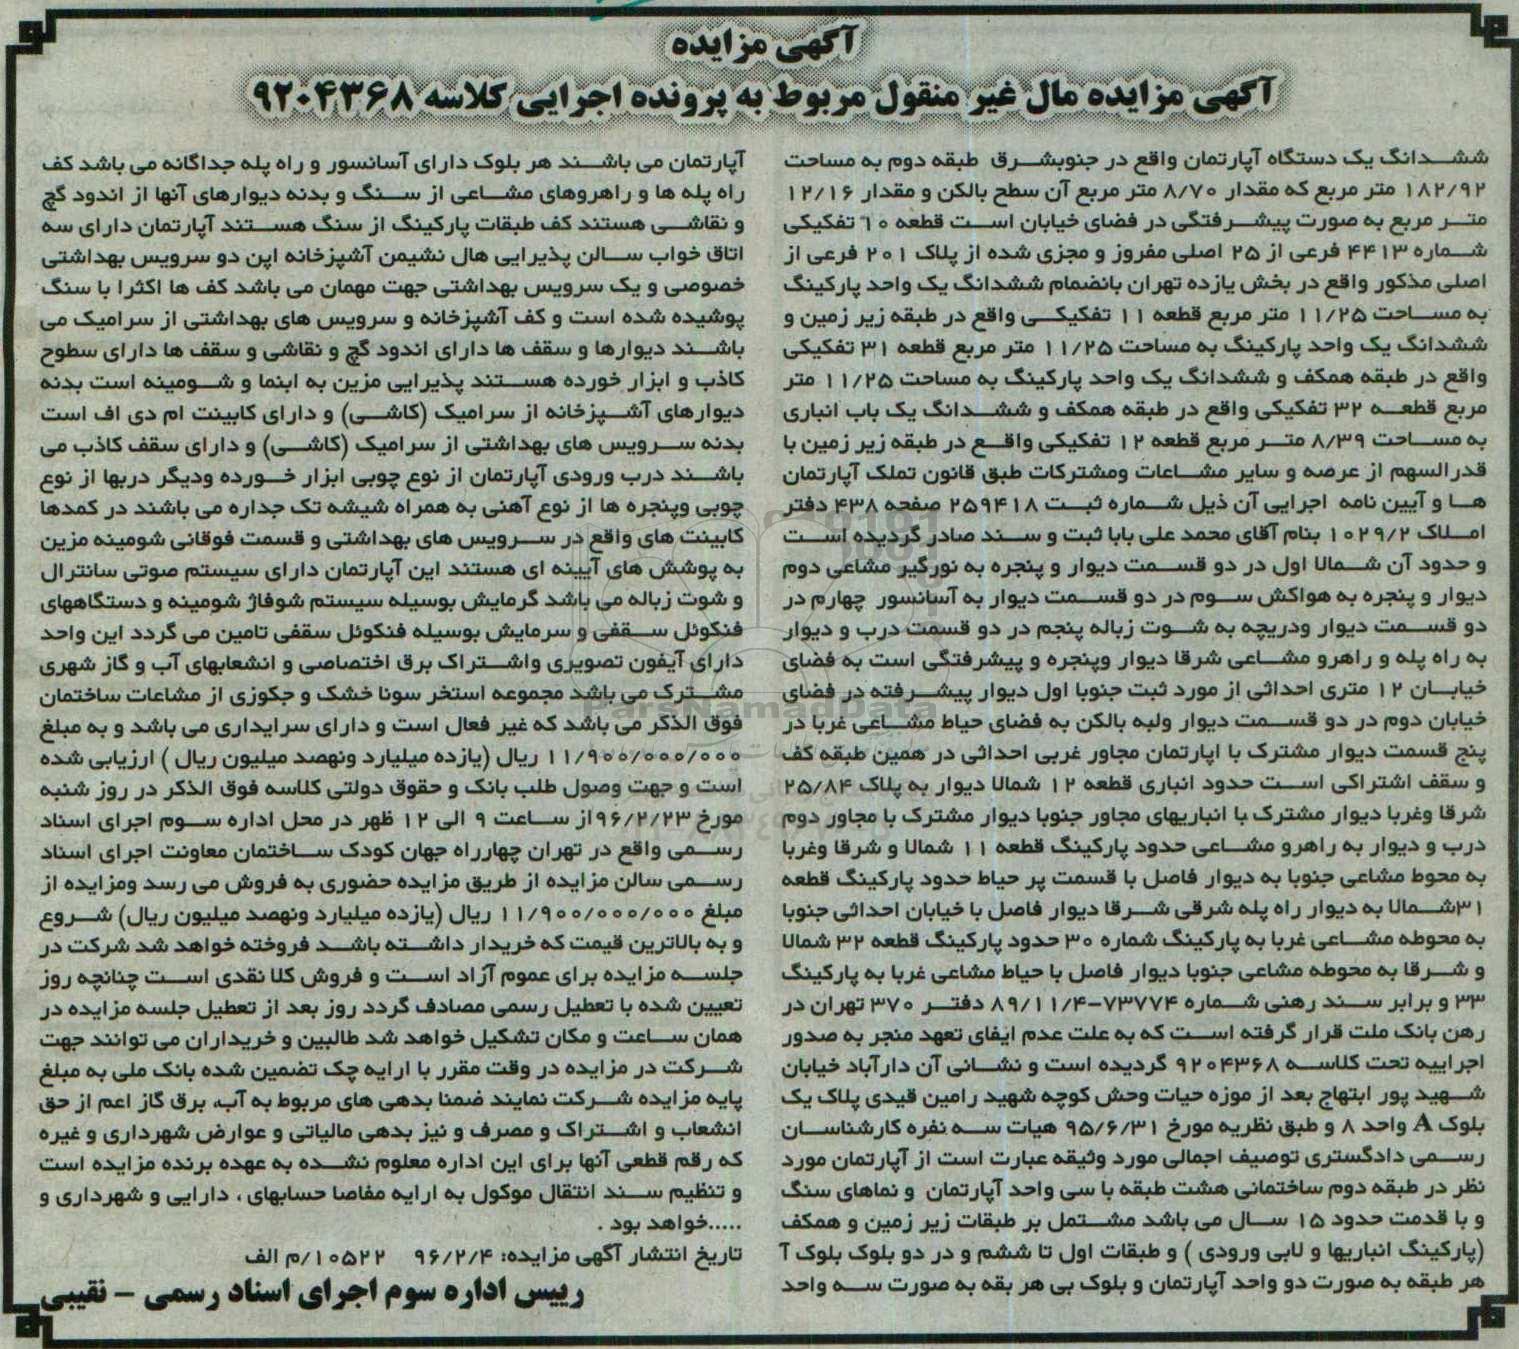 آگهی مزایده
آگهی مزایده مال غیر منقول مربوط به پرونده اجرایی کلاسه ۹۲۰۴۳۶۸
ششدانگ یک دستگاه آپارتمان واقع در جنوبشرق طبقه دوم به مساحت
۱۸۲/۹۲ متر مربع که مقدار ۸/۷۰ متر مربع آن سطح بالکن و مقدار ۱۲/۱۶
متر مربع به صورت پیشرفتگی در فضای خیابان است قطعه ۱۰ تفکیکی
شماره ۴۴۱۳ فرعی از ۲۵ اصلی مفروز و مجزی شده از پلاک ۲۰۱ فرعی از
اصلی مذکور واقع در بخش یازده تهران بانضمام ششدانگ یک واحد پارکینگ
به مساحت ۱۱/۲۵ متر مربع قطعه ۱۱ تفکیکی واقع در طبقه زیر زمین و
ششدانگ یک واحد پارکینگ به مساحت ۱۱/۲۵ متر مربع قطعه ۳۱ تفکیکی
واقع در طبقه همکف و ششدانگ یک واحد پارکینگ به مساحت ۱۱/۲۵ متر
مربع قطعه ۳۲ تفکیکی واقع در طبقه همکف و ششدانگ یک باب انباری
به مساحت ۸/۳۹ متر مربع قطعه ۱۲ تفکیکی واقع در طبقه زیر زمین با
قدرالسهم از عرصه و سایر مشاعات ومشترکات طبق قانون تملک آپارتمان
ها و آیین نامه اجرایی آن ذیل شماره ثبت ۲۵۹۴۱۸ صفحه ۴۳۸ دفتر
املاک ۱۰۲۹/۲ بنام آقای محمد علی بابا ثبت و سند صادر گردیده است
و حدود آن شمالا اول در دو قسمت دیوار و پنجره به نورگیر مشاعی دوم
دیوار و پنجره به هواکش سوم در دو قسمت دیوار به آسانسور چهارم در
دو قسمت دیوار ودریچه به شوت زباله پنجم در دو قسمت درب و دیوار
به راه پله و راهرو مشاعی شرقا دیوار وپنجره و پیشرفتگی است به فضای
خیابان ۱۲ متری احداثی از مورد ثبت جنوبا اول دیوار پیشرفته در فضای
خیابان دوم در دو قسمت دیوار ولبه بالکن به فضای حیاط مشاعی غربا در
پنج قسمت دیوار مشترک با اپارتمان مجاور غربی احداثی در همین طبقه کف
و سقف اشتراکی است حدود انباری قطعه ۱۲ شمالا دیوار به پلاک ۲۵/۸۴
شرقا وغربا دیوار مشترک با انباریهای مجاور جنوبا دیوار مشترک با مجاور دوم
درب و دیوار به راهرو مشاعی حدود پارکینگ قطعه ۱۱ شمالا و شرقا وغربا
به محوط مشاعی جنوبا به دیوار فاصل با قسمت پر حیاط حدود پارکینگ قطعه
۳۱شمالا به دیوار راه پله شرقی شرقا دیوار فاصل با خیابان احداثی جنوبا
به محوطه مشاعی غربا به پارکینگ شماره ۳۰ حدود پارکینگ قطعه ۳۲ شمالا
و شرقا به محوطه مشاعی جنوبا دیوار فاصل با حیاط مشاعی غربا به پارکینگ
۳۳ و برابر سند رهنی شماره ۷۳۷۷۴-۸۹/۱۱/۴ دفتر ۳۷۰ تهران در
رهن بانک ملت قرار گرفته است که به علت عدم ایفای تعهد منجر به صدور
اجراییه تحت کلاسه ۹۲۰۴۳۶۸ گردیده است و نشانی آن دارآباد خیابان
شهید پور ابتهاج بعد از موزه حیات وحش کوچه شهید رامین قیدی پلاک یک
بلوک A واحد ۸ و طبق نظریه مورخ ۹۵/۶/۳۱ هیات سه نفره کارشناسان
رسمی دادگستری توصیف اجمالی مورد وثیقه عبارت است از آپارتمان مورد
نظر در طبقه دوم ساختمانی هشت طبقه با سی واحد آپارتمان و نماهای سنگ
و با قدمت حدود ۱۵ سال می باشد مشتمل بر طبقات زیر زمین و همکف
(پارکینگ انباریها و لابی ورودی ) و طبقات اول تا ششم و در دو بلوک بلوک آ
هر طبقه به صورت دو واحد آپارتمان و بلوک بی هر بقه به صورت سه واحد
آپارتمان می باشند هر بلوک دارای آسانسور و راه پله جداگانه می باشد کف
راه پله ها و راهروهای مشاعی از سنگ و بدنه دیوارهای آنها از اندود گچ
و نقاشی هستند کف طبقات پارکینگ از سنگ هستند آپارتمان دارای سه
اتاق خواب سالن پذیرایی هال نشیمن آشپزخانه اپن دو سرویس بهداشتی
خصوصی و یک سرویس بهداشتی جهت مهمان می باشد کف ها اکثرا با سنگ
پوشیده شده است و کف آشپزخانه و سرویس های بهداشتی از سرامیک می
باشند دیوارها و سقف ها دارای اندود گچ و نقاشی و سقف ها دارای سطوح
کاذب و ابزار خورده هستند پذیرایی مزین به ابنما و شومینه است بدنه
دیوارهای آشپزخانه از سرامیک (کاشی) و دارای کابینت ام دی اف است
بدنه سرویس های بهداشتی از سرامیک (کاشی) و دارای سقف کاذب می
باشند درب ورودی آپارتمان از نوع چوبی ابزار خورده ودیگر دربها از نوع
چوبی وپنجره ها از نوع آهنی به همراه شیشه تک جداره می باشند در کمدها
کابینت های واقع در سرویس های بهداشتی و قسمت فوقانی شومینه مزین
به پوشش های آیینه ای هستند این آپارتمان دارای سیستم صوتی سانترال
و شوت زباله می باشد گرمایش بوسیله سیستم شوفاژ شومینه و دستگاههای
فنکوئل سقفی و سرمایش بوسیله فنکوئل سقفی تامین می گردد این واحد
دارای آیفون تصویری واشتراک برق اختصاصی و انشعابهای آب و گاز شهری
مشترک می باشد مجموعه استخر سونا خشک و جکوزی از مشاعات ساختمان
فوق الذکر می باشد که غیر فعال است و دارای سرایداری می باشد و به مبلغ
۱۱/۹۰۰/۰۰۰/۰۰۰ ریال (یازده میلیارد ونهصد میلیون ریال ) ارزیابی شده
است و جهت وصول طلب بانک و حقوق دولتی کلاسه فوق الذکر در روز شنبه
مورخ ۹۶/۲/۲۳از ساعت ۹ الی ۱۲ ظهر در محل اداره سوم اجرای اسناد
رسمی واقع در تهران چهارراه جهان کودک ساختمان معاونت اجرای اسناد
رسمی سالن مزایده از طریق مزایده حضوری به فروش می رسد ومزایده از
مبلغ ۱۱/۹۰۰/۰۰۰/۰۰۰ ریال (یازده میلیارد ونهصد میلیون ریال) شروع
و به بالاترین قیمت که خریدار داشته باشد فروخته خواهد شد شرکت در
جلسه مزایده برای عموم آزاد است و فروش کلا نقدی است چنانچه روز
تعیین شده با تعطیل رسمی مصادف گردد روز بعد از تعطیل جلسه مزایده در
همان ساعت و مکان تشکیل خواهد شد طالبین و خریداران می توانند جهت
شرکت در مزایده در وقت مقرر با ارایه چک تضمین شده بانک ملی به مبلغ
پایه مزایده شرکت نمایند ضمنا بدهی های مربوط به آب، برق گاز اعم از حق
انشعاب و اشتراک و مصرف و نیز بدهی مالیاتی و عوارض شهرداری و غیره
که رقم قطعی آنها برای این اداره معلوم نشده به عهده برنده مزایده است
و تنظیم سند انتقال موکول به ارایه مفاصا حسابهای ، دارایی و شهرداری و
.....خواهد بود .
تاریخ انتشار آگهی مزایده: ۹۶/۲/۴ ۱۰۵۲۲/م الف
رییس اداره سوم اجرای اسناد رسمی – نقیبی
ParsNamadData